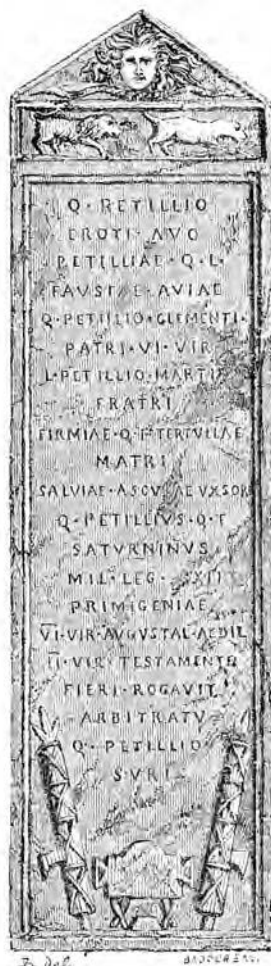 Q · PETILLIO
EROTI · AVO
PETILLIAE · Q · L ·
FAVSTAE · AVIAE
Q · PETILIO · CLEMENTI ·
PATRI · VI · VIR
L · PETILLIO · MARTI
FRATRI
FIRMIAE · Q · F · TERTVLLAE
MATRI
SALVIAE · ASCVLAE VXSOR
Q · PETILLIVS · Q · F
SATVRNINVS
MIL · LEG · XXII
PRIMIGENIAE
VI · VIR · AVGVSTAL · AEDIL
II · VIR · TESTAMENTO
FIERI · ROGAVIT
ARBITRATV
Q · PETILLIO
SVRI
del.